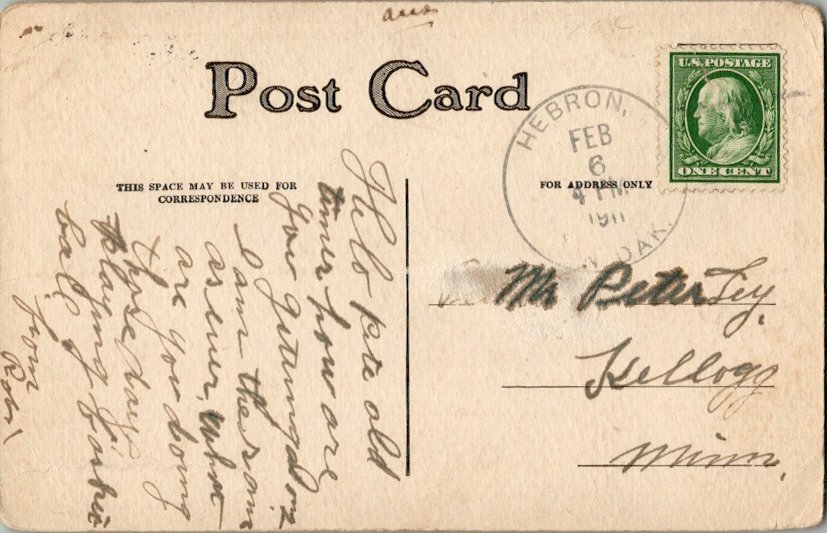 ans
Post Card
U.S. POSTAGE
ONE CENT
HEBRON,
FEB
6
4 PM
1911
N. DAK.
THIS SPACE MAY BE USED FOR
CORRESPONDENCE
FOR ADDRESS ONLY
Hello Pete old
timer how are
you getting along
I am the same
as ever, when
are you doing
those days
playing basket
ball
from
Rob
Mr Peter Fey,
Kellogg
Minn,